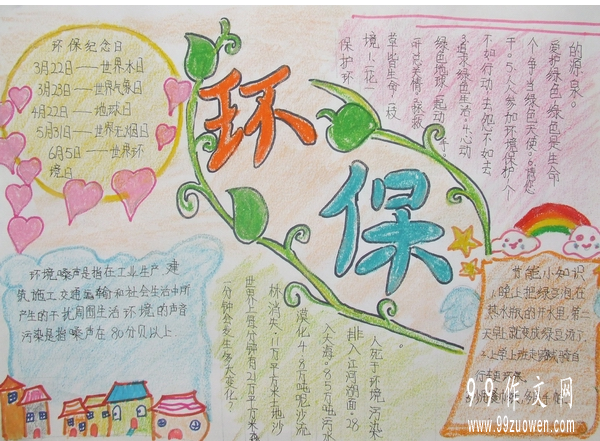 环保纪念日
3月22日——世界水日
3月23日——世界气象日
4月22日——地球日
5月31日——世界无烟日
6月5日——世界环
境日
环保
保护环
境1.一花一
草皆生命,一枝
一叶总关情2.拯救
绿色地球,一起动手。
3.追求绿色生活,心动
不如行动,去想不如去
干。5.人人参加环境保护,个
个争当绿色天使。
爱护绿色,绿色是生命
的源泉。
环境噪声是指在工业生产,建
筑施工,交通运输和社会生活中所
产生的干扰周围生活环境的声音
污染是指噪声在80分贝以上
一分钟会发生多大变化?
世界上每分钟有21万平方米森
林消失,11万平方米土地沙
漠化,4.8万吨泥沙流
入大海,85万吨污水
排入江河湖面,28
人死于环境污染
节能小知识
1.晚上把绿豆泡在
热水瓶的开水里,第二
天早上就变成绿豆汤了。
2.上学上班走路或骑自
行车更环保。
99作文网
www.99zuowen.com